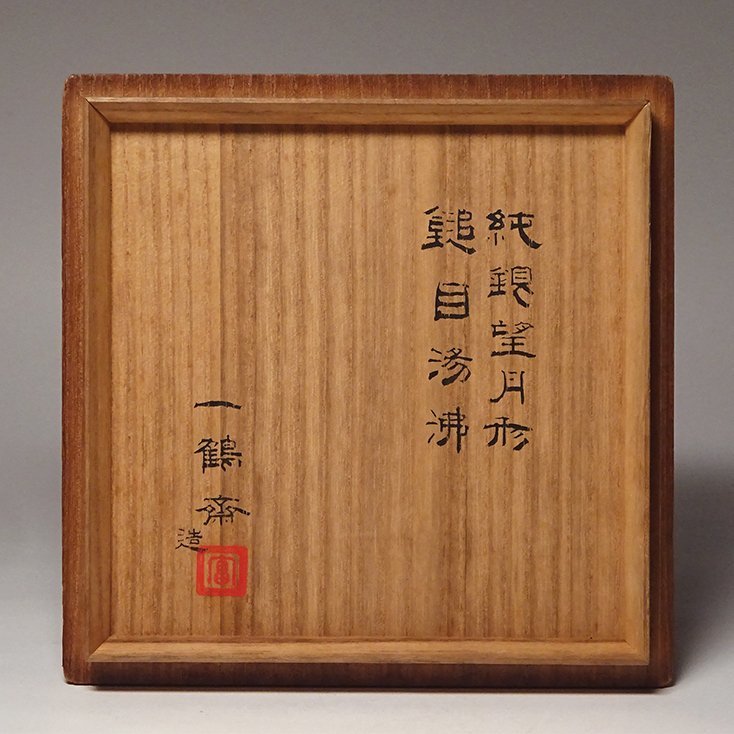 純銀望月形
鎚目湯沸
一鶴斎
造